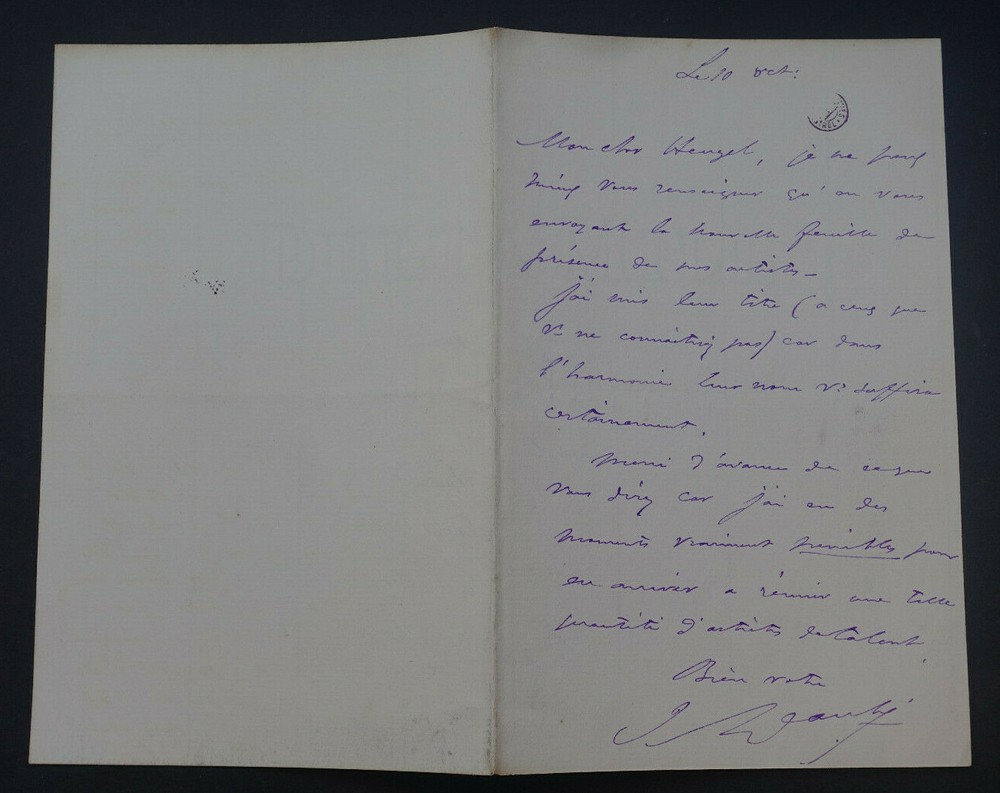 Le 10 oct:
Mon cher Heugel, je ne puis
mieux vous renseigner qu'en vous
envoyant la nouvelle feuille de
présence de nos artistes —
J'ai mis leur titre (a ceux que
vs ne connaitriez pas) car dans
l'harmonie leur nom vs suffira
certainement.
Merci d'avance de ce que
vous direz car j'ai eu des
moments vraiment penibles pour
en arriver a réunir une telle
quantité d'artistes de talent
Bien votre
J Danbé